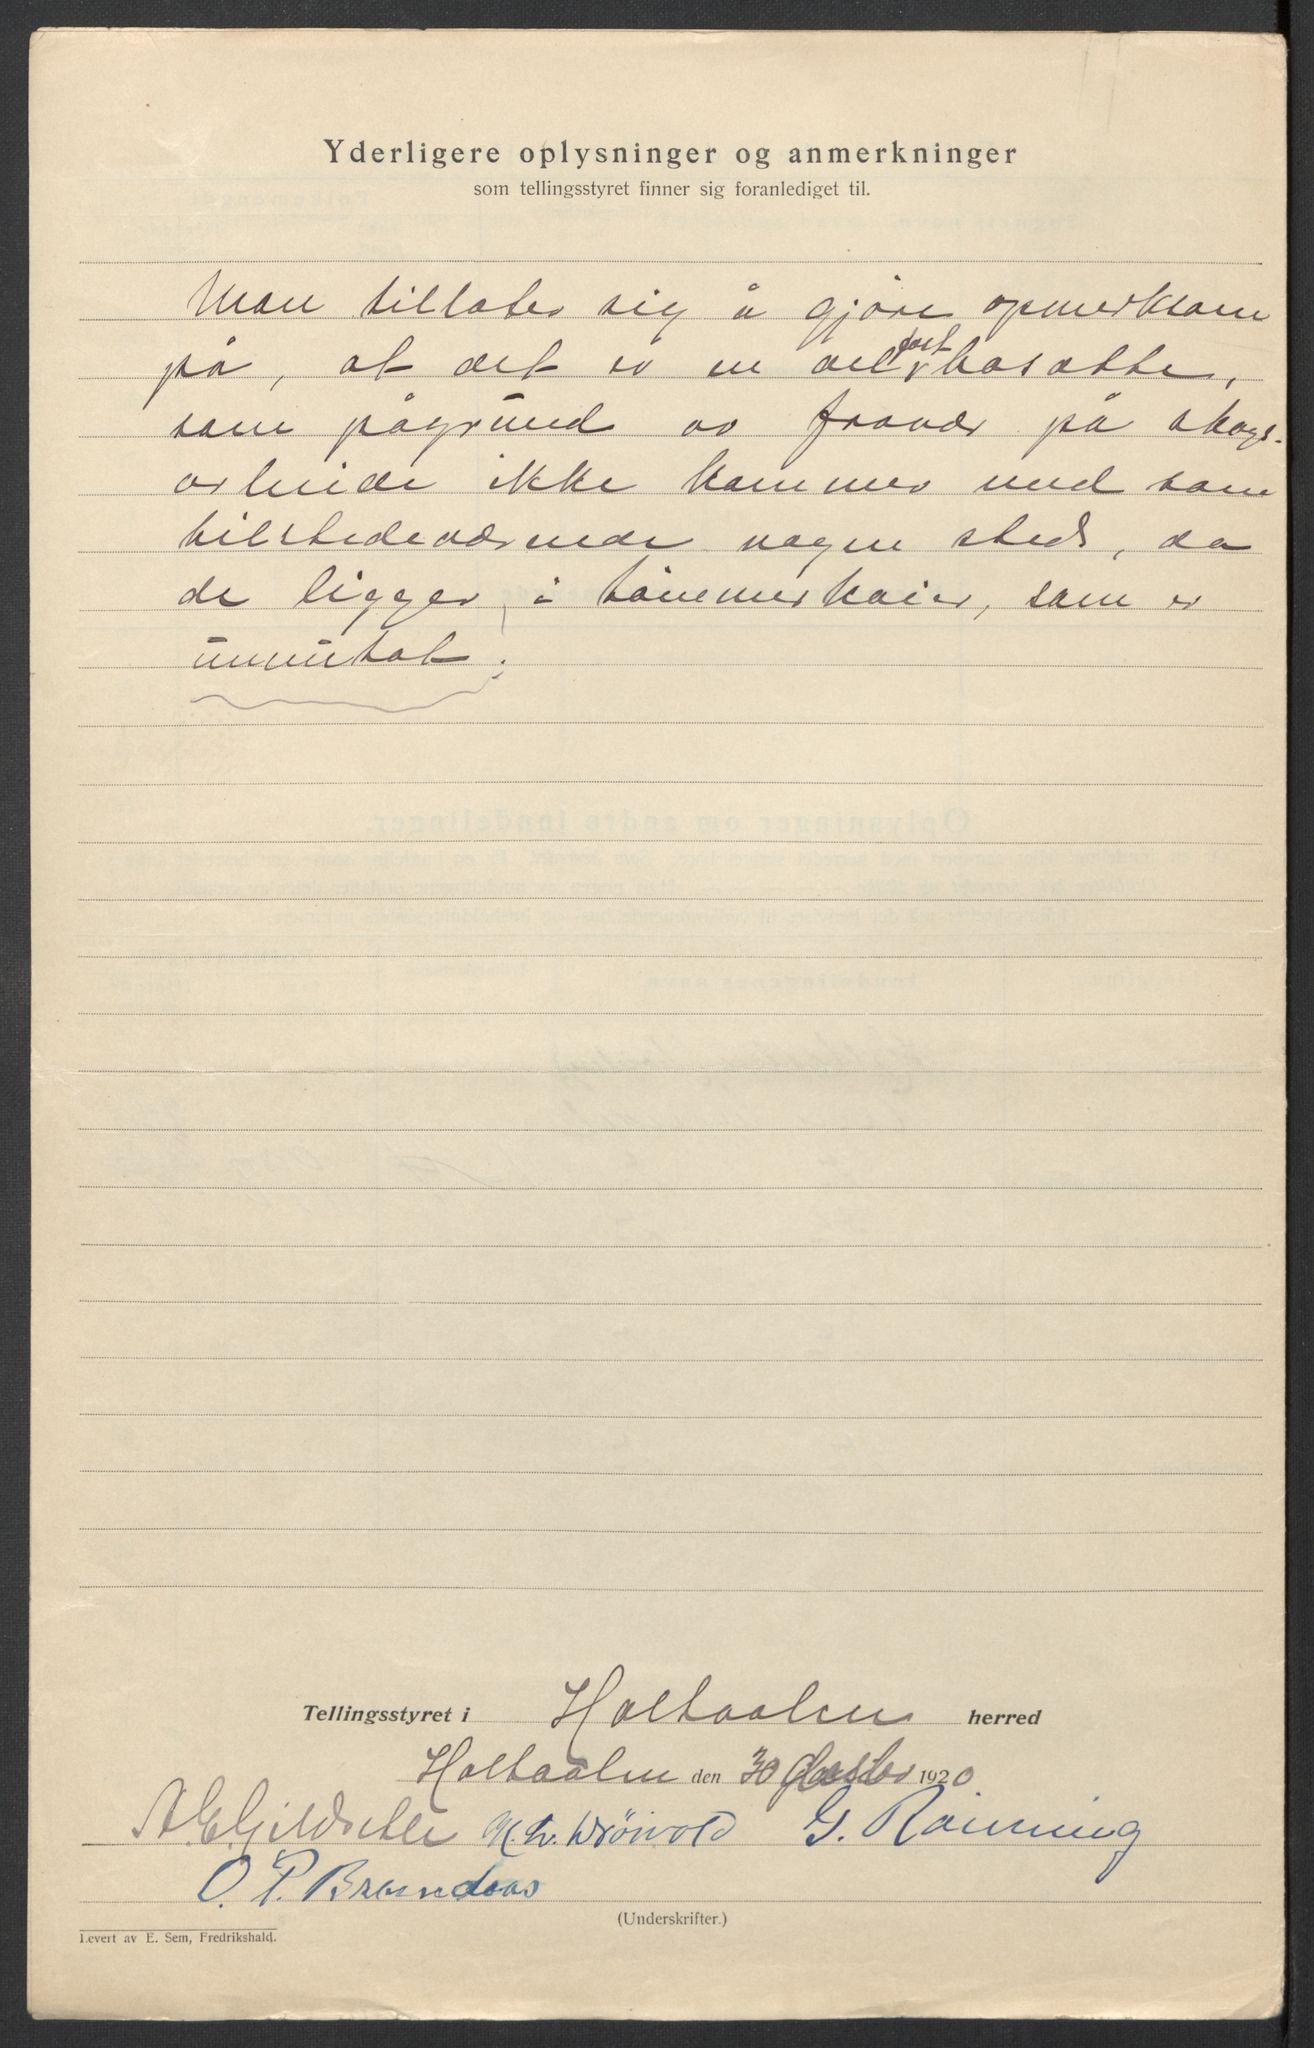 Yderligere oplysninger og anmerkninger
som tellingsstyret finner sig foranlediget til.
Man tillater sig å gjøre opmerksom
på, at det er en del fast bosatte,
som pågrund av fravær på skogs-
arbeide ikke kommer med som
tilstedeværende nogen steds, da
de ligger i tømmerkoier, som er
unummerert.
Tellingsstyret i Holtaalen herred
Holtaalen den 30 1920
G. Rönning
O. P. Brændaas
(Underskrifter.)
Levert av E. Sem, Fredrikshald.